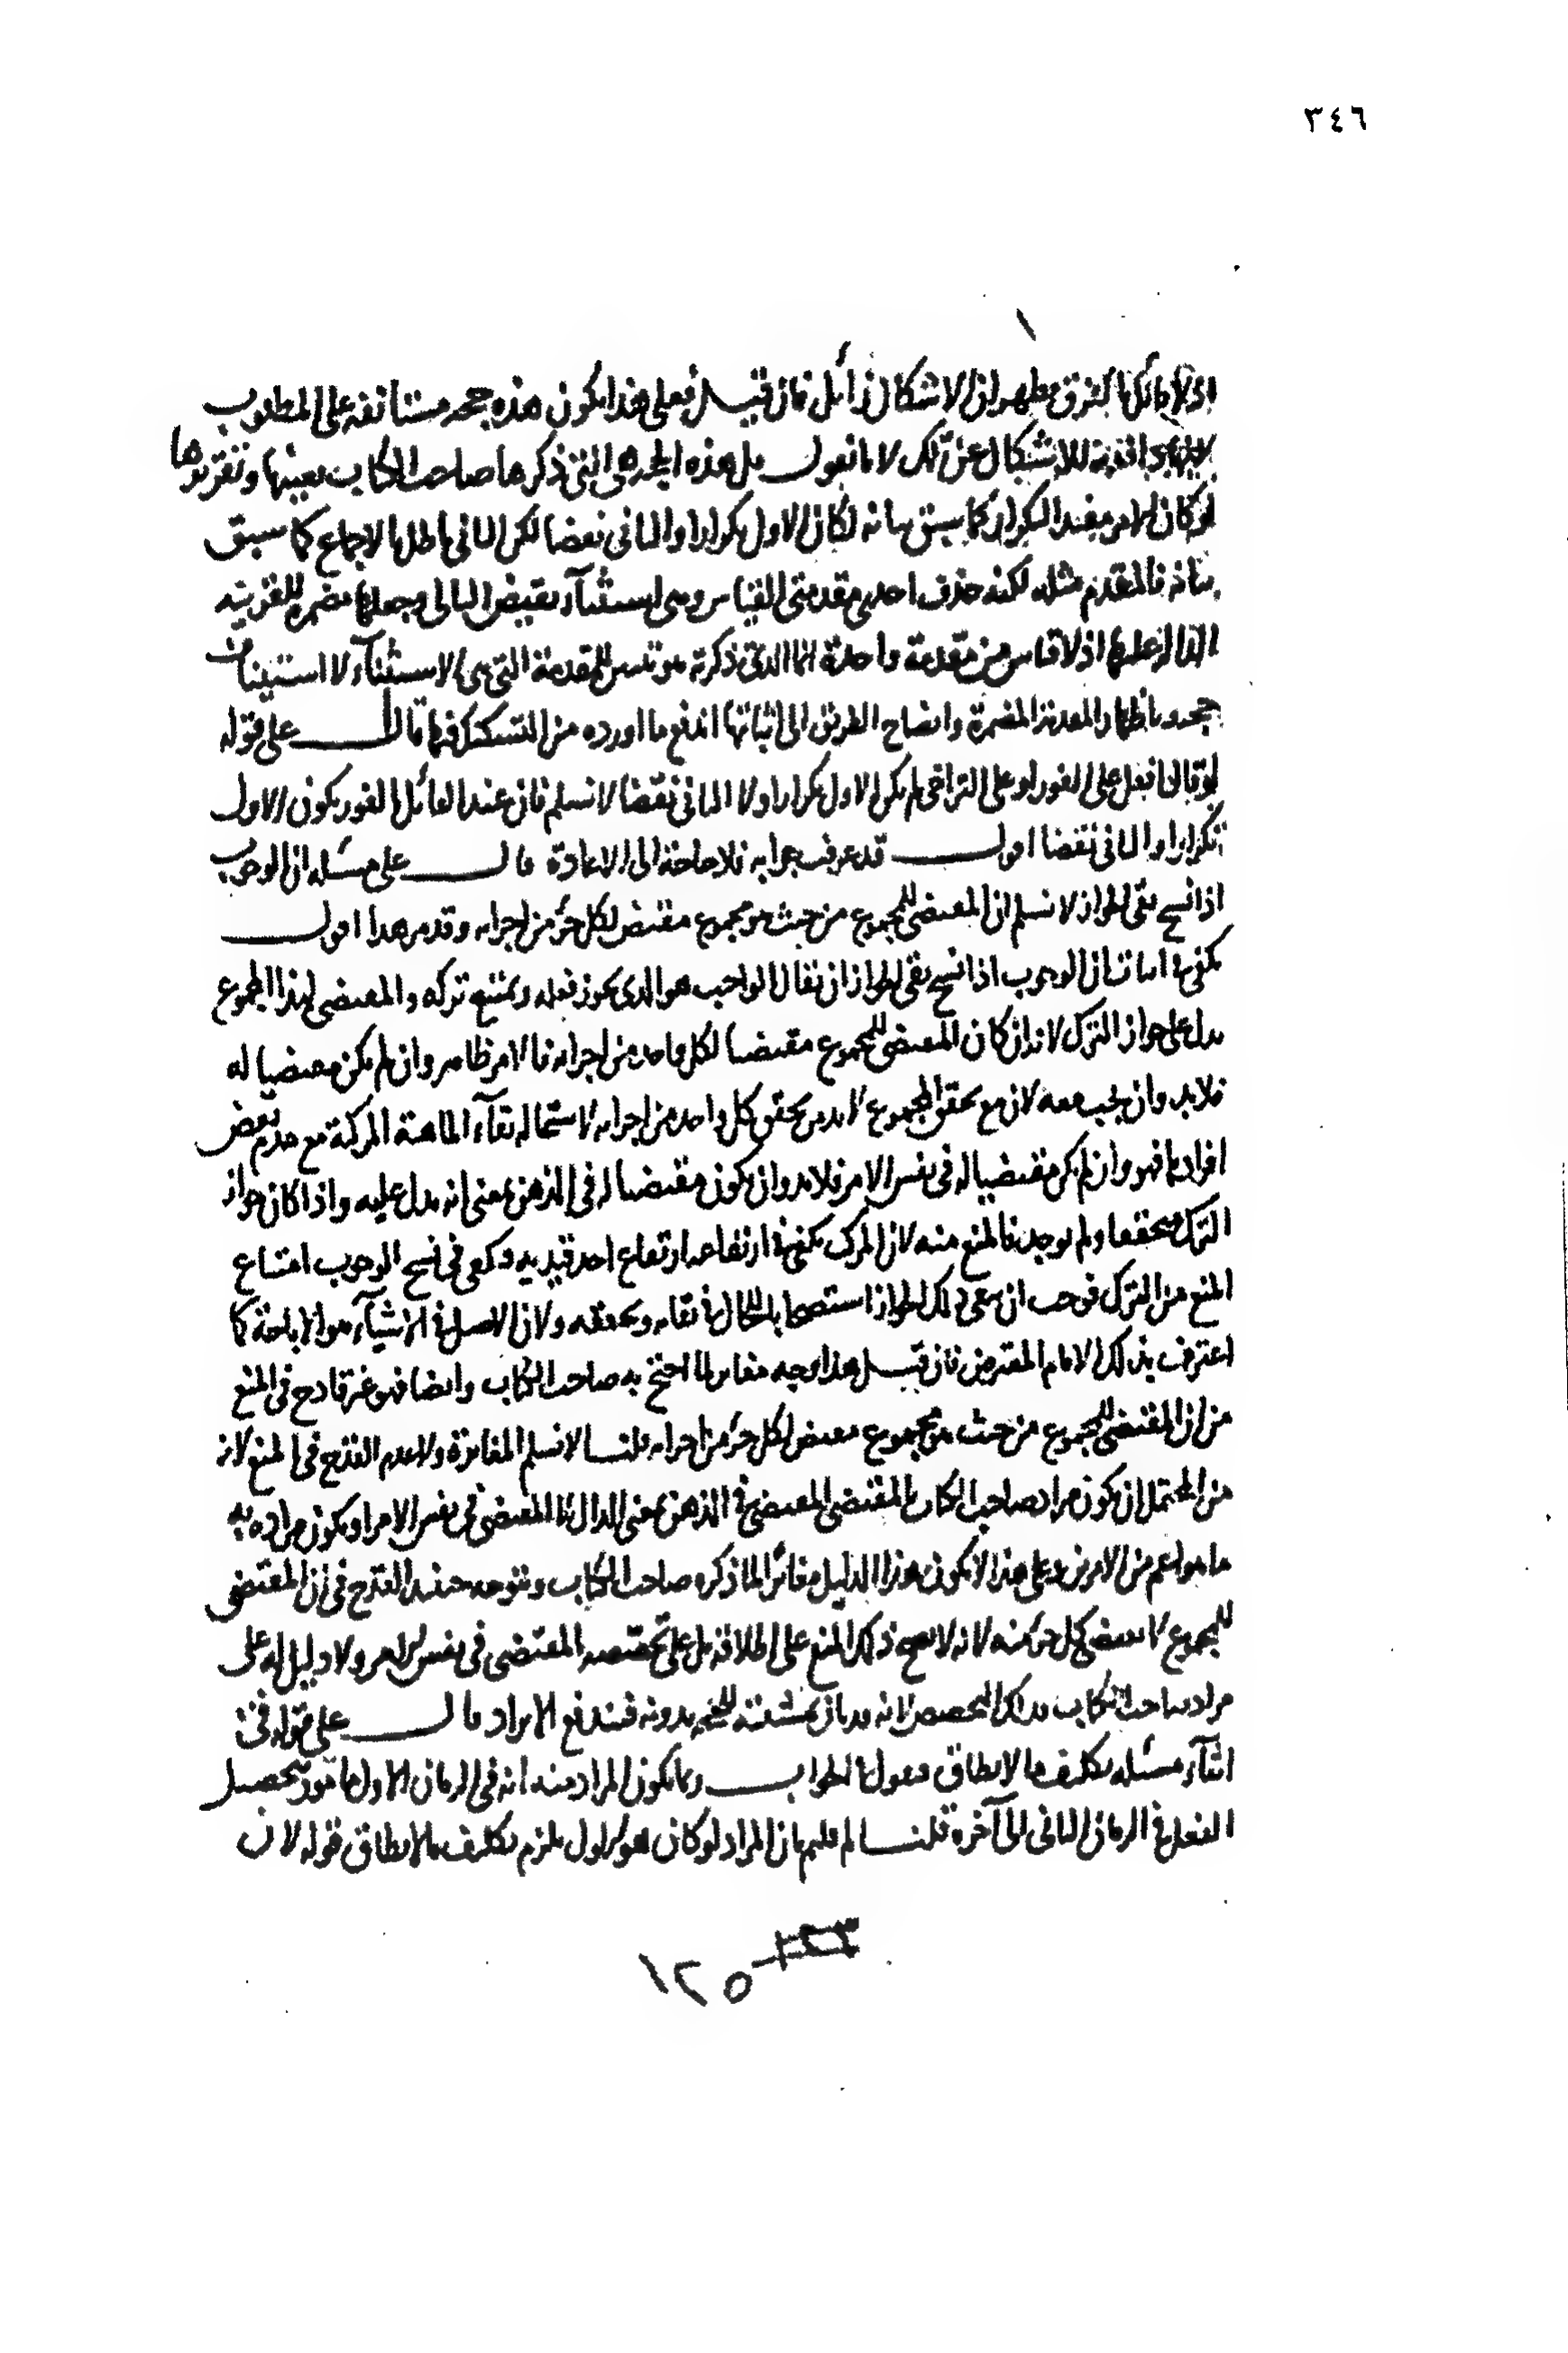 ٣٤٦
اذ لا قائل بالفرق فظهر ان الاشكال زائل فان قيل فعلى هذا يكون هذه حجة مستانفة على المطلوب
للاشكال عن تلك لانا نقول بل هذه الحجة هى التى ذكرها صاحب الكتاب بعينها وتقريرها
لو كان الامر مفيدا للتكرار كما سبق بيانه لكان الاول تكرارا والثانى نقضا لكن التالى باطل بالاجماع كما سبق
بيانه فالمقدم مثله لكنه حذف احدى مقدمتى القياس وهى استثناء نقيض التالى وجعلها مضمرة للقرينة
الدالة عليها اذ لا قياس من مقدمة واحدة انما الذى ذكرته هو تاسيس للمقدمة التى هى الاستثناء لا استيناف
حجة وباظهار المقدمة المضمرة وايضاح الطريق الى اثباتها اندفع ما اورده من التشكيك فيها قال على قوله
لو قال افعل على الفور او على التراخى لم يكن الاول تكرارا ولا الثانى نقضا لا نسلم فان عند القائل بالفور يكون الاول
تكرارا والثانى نقضا اقول قد عرفت جوابه فلا حاجة الى الاعادة قال على مسئلة ان الوجوب
اذا نسخ بقى الجواز لا نسلم ان المقتضى للمجموع من حيث هو مجموع مقتض لكل جزء من اجزائه وقد مر هذا اقول
يكفى فى اثبات ان الوجوب اذا نسخ بقى الجواز ان يقال الواجب هو الذى يجوز فعله ويمتنع تركه والمقتضى لهذا المجموع
يدل على جواز الترك لانه ان كان المقتضى للمجموع مقتضيا لكل واحد من اجزائه فالامر ظاهر وان لم يكن مقتضيا له
فلا بد وان يجب معه لان مع تحقق المجموع لا بد من تحقق كل واحد من اجزائه لاستحالة بقاء الماهية المركبة مع عدم بعض
افرادها فهو وان لم يكن مقتضيا له فى نفس الامر فلا بد وان يكون مقتضيا له فى الذهن بمعنى انه يدل عليه واذا كان جواز
الترك متحققا ولم يوجد فالمنع منه لان المركب يكفى فى ارتفاعه ارتفاع احد قيديه وكفى فى نسخ الوجوب امتناع
المنع من الترك فوجب ان يبقى ذلك الجواز استصحابا للحال فى بقائه وتحققه ولان الاصل فى الاشياء هو الاباحة كما
اعترف بذلك الامام المعترض فان قيل هذا وجه مغاير لما احتج به صاحب الكتاب وايضا فهو غير قادح فى المنع
من ان المقتضى للمجموع من حيث هو مجموع مقتض لكل جزء من اجزائه قلنا لا نسلم المغايرة ولا عدم القدح فى المنع لانه
من المحتمل ان يكون مراد صاحب الكتاب بالمقتضى المقتضى فى الذهن بمعنى الدال لا المقتضى فى نفس الامر او يكون مراده به
ما هو اعم من الامرين وعلى هذا لا يكون هذا الدليل مغائرا لما ذكره صاحب الكتاب ويتوجه حينئذ القدح فى ان المقتضى
للمجموع لا يقتضى كل جزء منه لانه لا يصح ذلك المنع على اطلاقه بل على تخصيصه المقتضى فى نفس الامر ولا دليل له على
مراد صاحب الكتاب بذلك التخصيص لانه قد بان تمشيته للحجة بدونه فيندفع الايراد قال على قوله فى
اثناء مسئلة تكليف ما لا يطاق فنقول فى الجواب وما يكون المراد منه انه فى الزمان الاول مامور بتحصيل
الفعل فى الزمان الثانى الى آخره قلنا لم قلتم بان المراد لو كان هو الاول يلزم تكليف ما لا يطاق قوله لان